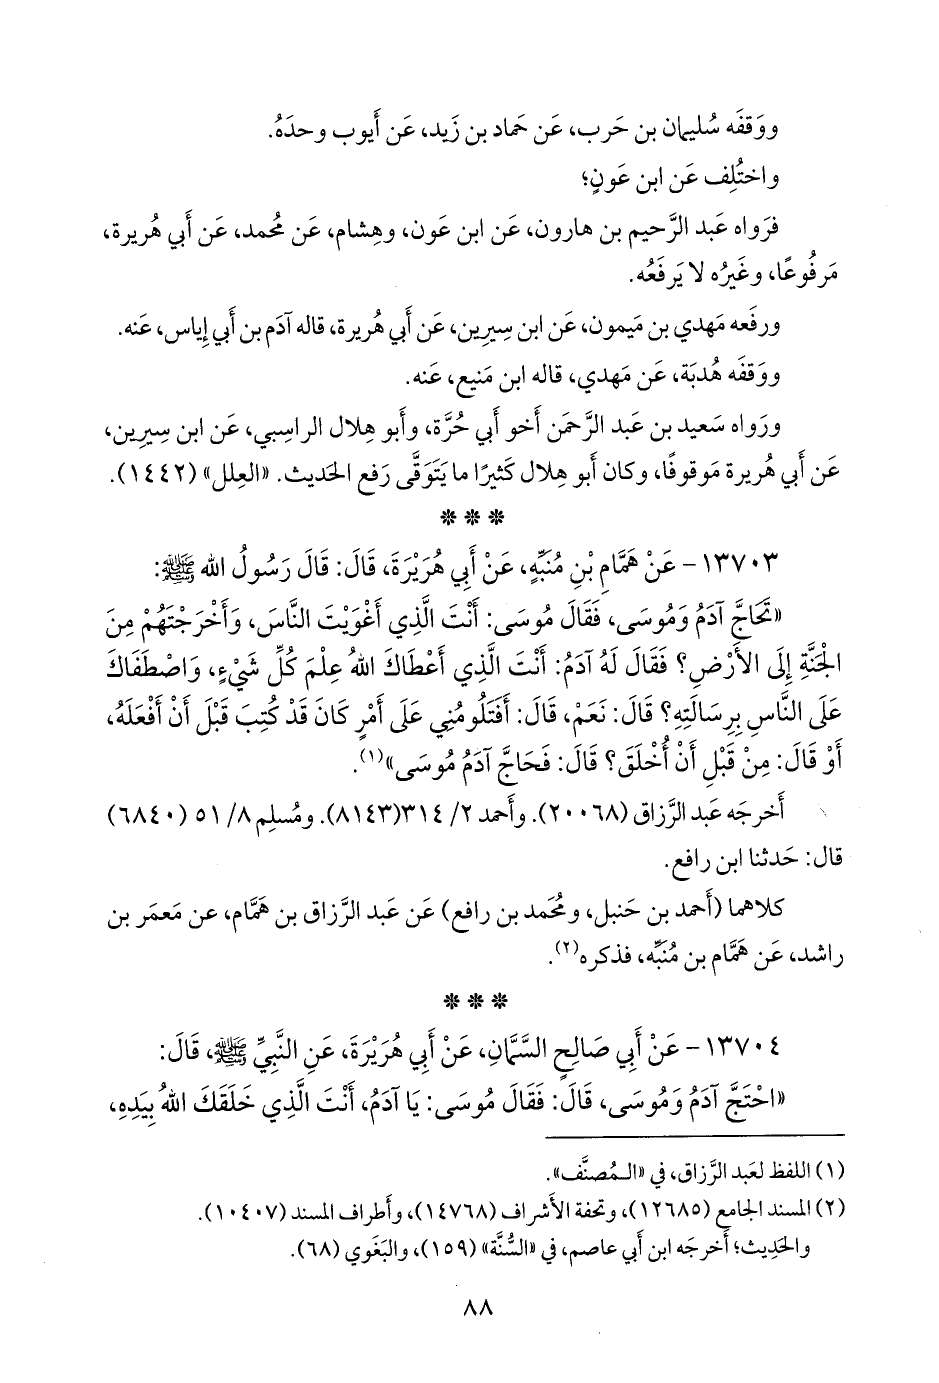 ووَقفَه سُليمان بن حَرب، عَن حَماد بن زَيد، عَن أَيوب وحدَهُ.
واختُلِف عَن ابن عَونٍ؛
فرَواه عَبد الرَّحيم بن هارون، عَن ابن عَون، وهِشام، عَن مُحمد، عَن أَبي هُريرة،
مَرفُوعًا، وغَيرُه لا يَرفَعُه.
ورفَعه مَهدي بن مَيمون، عَن ابن سِيرِين، عَن أَبي هُريرة، قاله آدَم بن أَبي إِياس، عَنه.
ووَقفَه هُدبَة، عَن مَهدي، قاله ابن مَنيع، عَنه.
ورَواه سَعيد بن عَبد الرَّحمَن أَخو أَبي حُرَّة، وأَبو هِلال الراسِبي، عَن ابن سِيرِين،
عَن أَبي هُريرة مَوقوفًا، وكان أَبو هِلال كَثيرًا ما يَتَوَقَّى رَفع الحَديث. «العِلل» (١٤٤٢).
* * *
١٣٧٠٣ - عَنْ هَمَّامِ بْنِ مُنَبِّهٍ، عَنْ أَبِي هُرَيْرَةَ، قَالَ: قَالَ رَسُولُ الله ﷺ:
«تَحَاجَّ آدَمُ وَمُوسَى، فَقَالَ مُوسَى: أَنْتَ الَّذِي أَغْوَيْتَ النَّاسَ، وَأَخْرَجْتَهُمْ مِنَ
الجَنَّةِ إِلَى الأَرْضِ؟ فَقَالَ لَهُ آدَمُ: أَنْتَ الَّذِي أَعْطَاكَ اللهُ عِلْمَ كُلِّ شَيْءٍ، وَاصْطَفَاكَ
عَلَى النَّاسِ بِرِسَالَتِهِ؟ قَالَ: نَعَمْ، قَالَ: أَفَتَلُومُنِي عَلَى أَمْرٍ كَانَ قَدْ كُتِبَ قَبْلَ أَنْ أَفْعَلَهُ،
أَوْ قَالَ: مِنْ قَبْلِ أَنْ أُخْلَقَ؟ قَالَ: فَحَاجَّ آدَمُ مُوسَى»(١).
أَخرجَه عَبد الرَّزاق (٢٠٠٦٨). وأَحمد ٢/ ٣١٤(٨١٤٣). ومُسلِم ٨/ ٥١ (٦٨٤٠)
قال: حَدثنا ابن رافع.
كلاهما (أَحمد بن حَنبل، ومُحَمد بن رافع) عَن عَبد الرَّزاق بن هَمَّام، عن مَعمَر بن
راشد، عَن هَمَّام بن مُنَبِّه، فذكره(٢).
* * *
١٣٧٠٤ - عَنْ أَبِي صَالِحٍ السَّمَّانِ، عَنْ أَبِي هُرَيْرَةَ، عَنِ النَّبِيِّ ﷺ، قَالَ:
«احْتَجَّ آدَمُ وَمُوسَى، قَالَ: فَقَالَ مُوسَى: يَا آدَمُ، أَنْتَ الَّذِي خَلَقَكَ اللهُ بِيَدِهِ،
(١) اللفظ لعَبد الرَّزاق، في «المُصنَّف».
(٢) المسند الجامع (١٢٦٨٥)، وتحفة الأَشراف (١٤٧٦٨)، وأَطراف المسند (١٠٤٠٧).
والحَدِيث؛ أَخرجَه ابن أَبي عاصم، في «السُّنَّة» (١٥٩)، والبَغَوي (٦٨).
٨٨